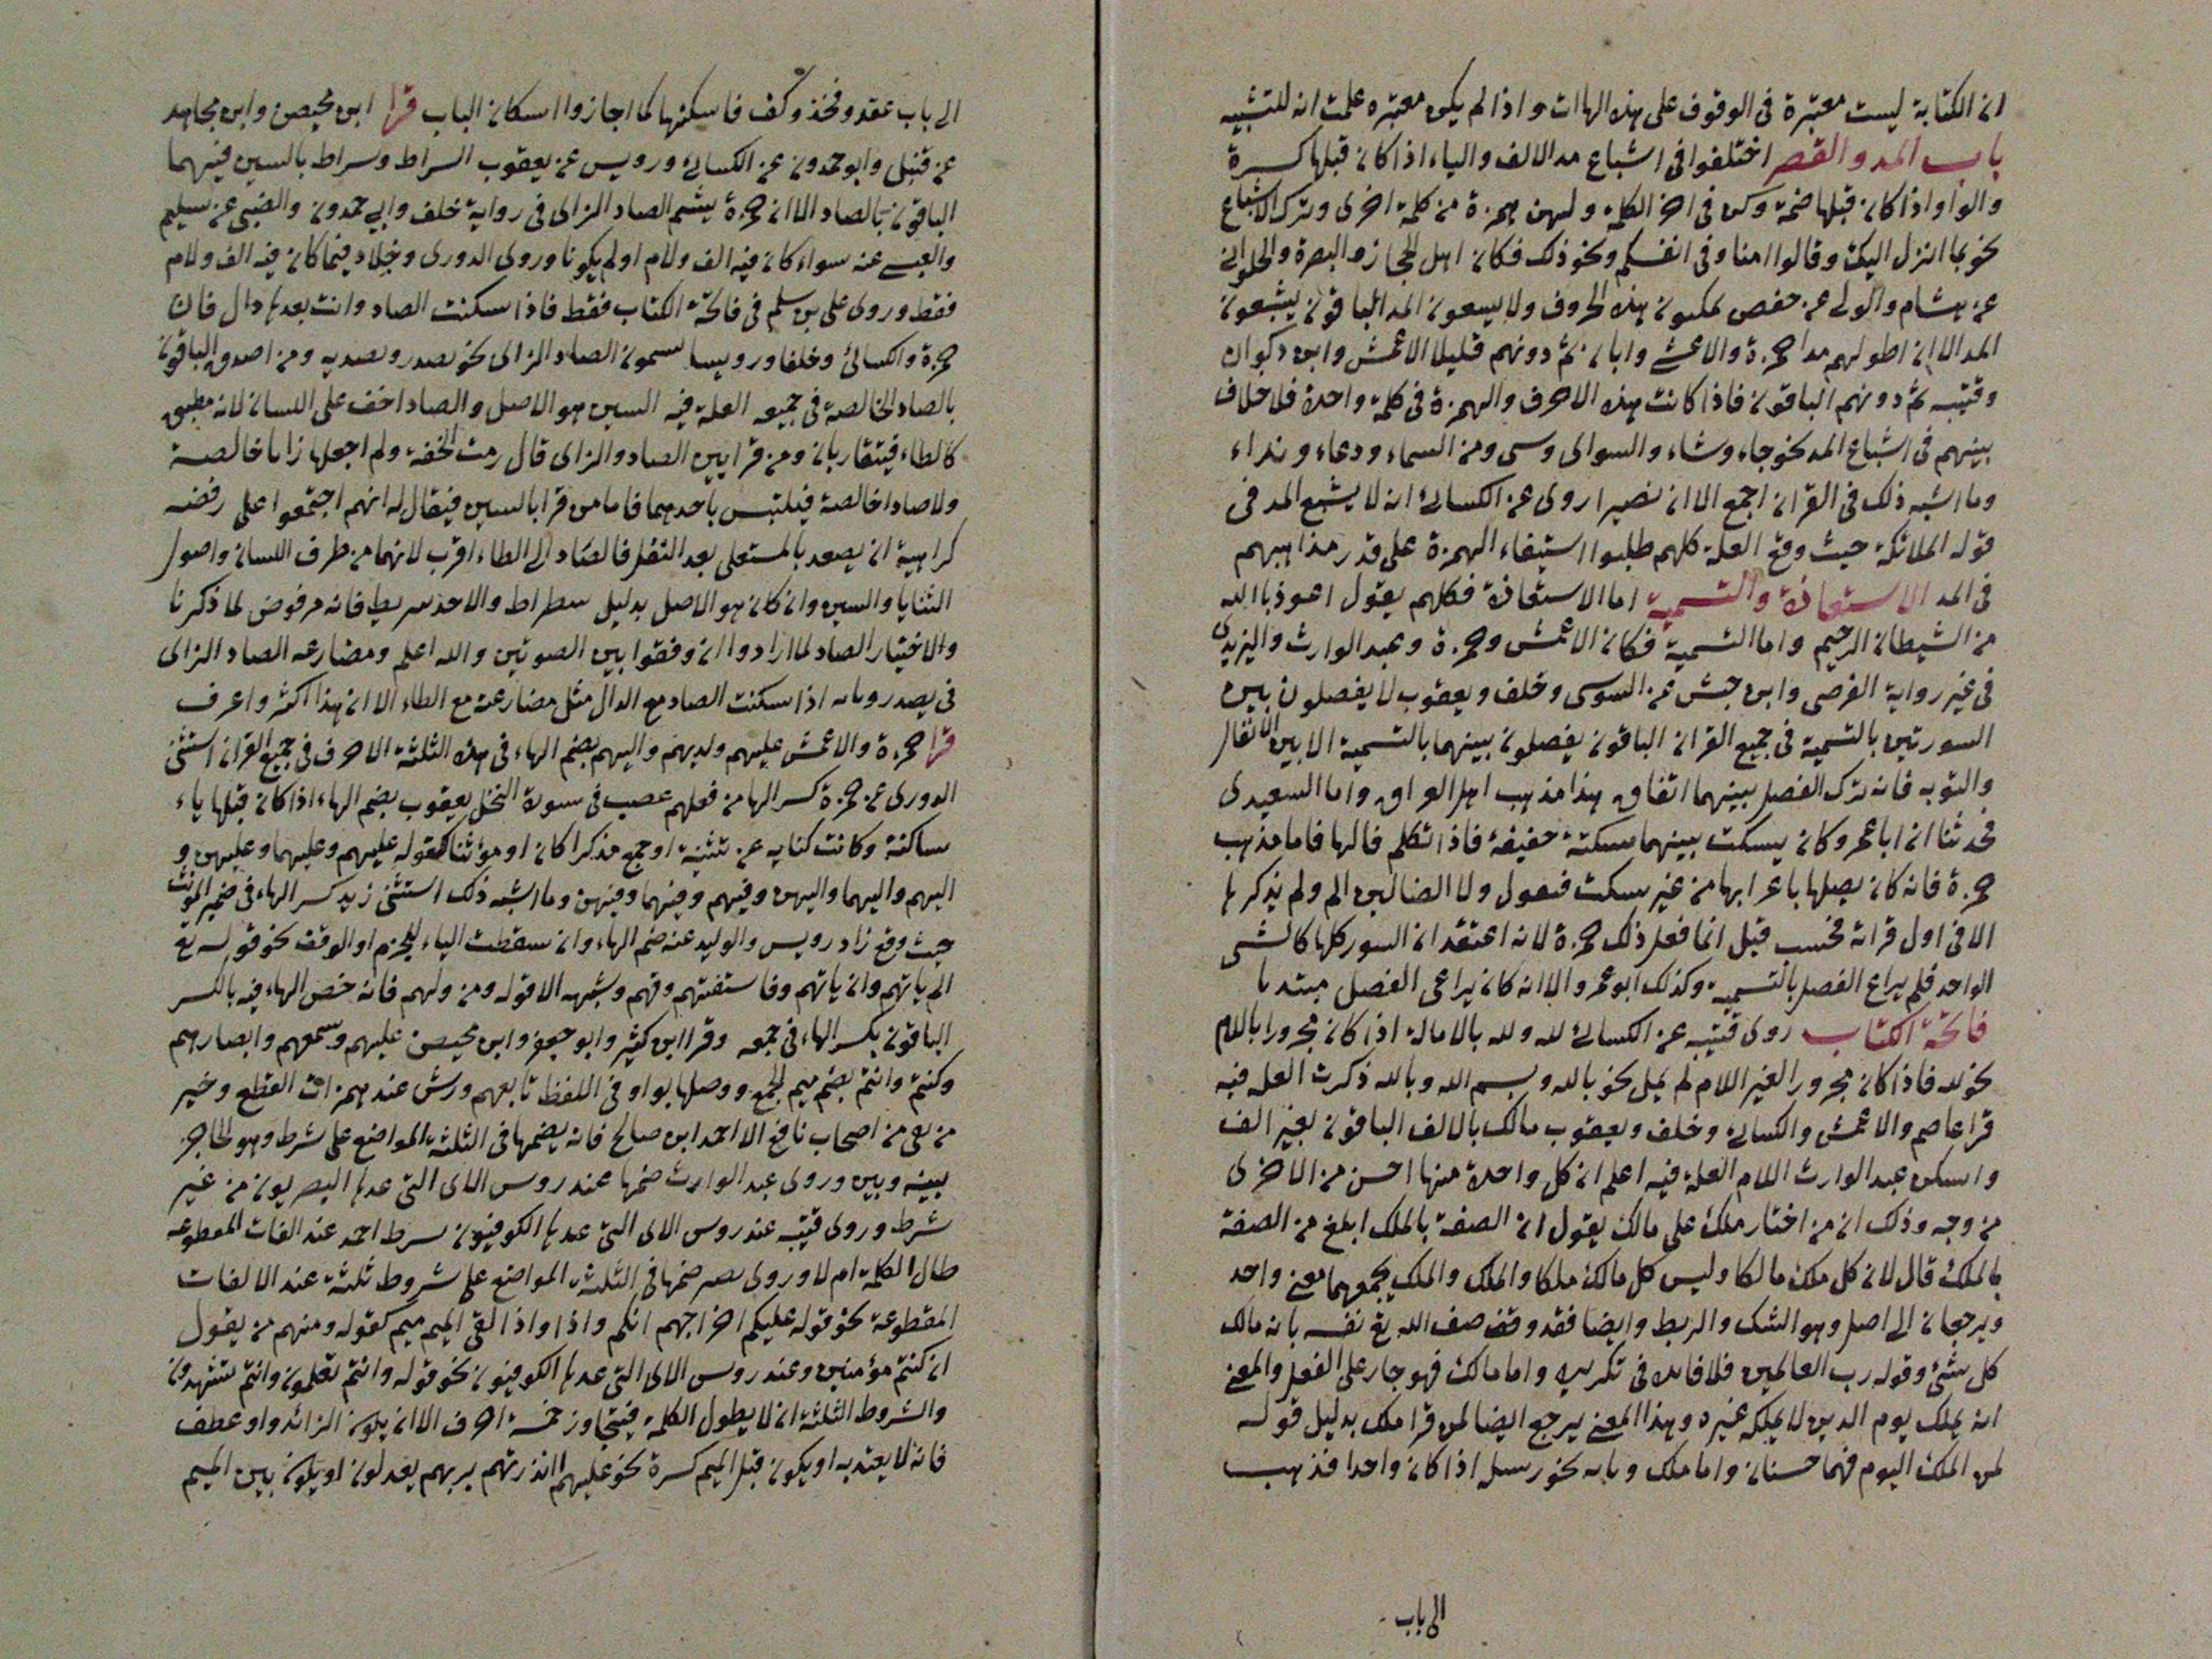 ان الكتابة ليست معتبرة فى الوقوف على هذه الهاات واذا لم يكن معتبره علمت انه للتشبيه
باب المد والقصر اختلفوا فى اشباع مد الالف والياء اذا كان قبلها كسرة
والواو اذا كان قبلها ضمة وكن فى اخر الكلمة ولهن همزة من كلمة اخرى وترك الاشباع
نحو بما انزل اليك وقالوا امنا وفى انفسكم ونحو ذلك فكان اهل الحجاز والبصرة والحلوانى
عن هشام والولى عن حفص يمكنون هذه الحروف ولا يسعون المد الباقون يشبعون
المد الا ان اطولهم مدا حمزة والاعشى وابان ثم دونهم قليلا الاعمش وابن ذكوان
وقتيبه ثم دونهم الباقون فاذا كانت هذه الاحرف والهمزة فى كلمة واحدة فلا خلاف
بينهم فى اشباع المد نحو جاء وشاء والسواى وسى ومن السماء ودعاء ونداء
وما اشبه ذلك فى القران اجمع الا ان نصيرا روى عن الكسائى انه لا يشبع المد فى
قوله الملائكة حيث وقع العلة كلهم طلبوا استيفاء الهمزة على قدر مذاهبهم
فى المد الاستعاذة والتسمية اما الاستعاذة فكلهم يقول اعوذ بالله
من الشيطان الرجيم واما التسمية فكان الاعمش وحمزة وعبد الوارث واليزيدى
فى غير رواية القرصى وابن حبش عن السوسى وخلف ويعقوب لا يفصلون بين
السورتين بالتسمية فى جميع القران الباقون يفصلون بينهما بالتسمية الا بين الانفال
والتوبه فانه ترك الفصل بينهما اتفاق هذا مذهب اهل العراق واما السعيدى
فحدثنا ان ابا عمرو كان يسكت بينهما سكتة خفيفة فاذا تكلم قالها فاما مذهب
حمزة فانه كان يصلها باعرابها من غير سكت فنعول ولا الضالين الم ولم يذكرها
الا فى اول قراته فحسب قيل انما فعل ذلك حمزة لانه اعتقد ان السور كلها كالشى
الواحد فلم يراع الفصل بالتسمية وكذلك ابو عمرو الا انه كان يراعى الفصل مبتدىا
فاتحة الكتاب روى قتيبه عن الكسائى لله ولله بالامالة اذا كان مجرورا باللام
نحو لله فاذا كان مجرورا لغير اللام لم يمل نحو بالله وبسم الله وبالله ذكرت العلة فيه
قرا عاصم والاعمش والكسائى وخلف ويعقوب مالك بالالف الباقون بغير الف
واسكن عبد الوارث اللام العلة فيه اعلم ان كل واحدة منها احسن من الاخرى
من وجه وذلك ان من اختار ملك على مالك يقول ان الصفة بالملك ابلغ من الصفة
بالملك قال لان كل ملك مالكا وليس كل مالك ملكا والملك والملك يجمعهما معنى واحد
ويرجعان الى اصل وهو الشك والربط وايضا فقد وقف صف الله تع نفسه بانه مالك
كل شئ وقوله رب العالمين فلا فائدة فى تكريره واما مالك فهو جار على الفعل والمعنى
انه يملك يوم الدين لا يملكه غيره وهذا المعنى يرجع ايضا لمن قرا ملك بدليل قوله
لمن الملك اليوم فهما حسنان واما ملك وبابه نحو رسل اذا كان واحدا فذهب
الى باب
الى باب عقد وفخذ وكف فاسكنها كما اجازوا اسكان الباب قرا ابن محيصن وابن مجاهد
عن قنبل وابو حمدون عن الكسائى ورويس عن يعقوب السراط وسراط بالسين فيهما
الباقون بالصاد الا ان حمزة يشم الصاد الزاى فى رواية خلف وابى حمدون والضبى عن سليم
والعبسى عنه سواء كان فيه الف ولام او لم يكونا وروى الدورى وخلاد فيما كان فيه الف ولام
فقط وروى على بن سلم فى فاتحة الكتاب فقط فاذا سكنت الصاد وانت بعدها دال فان
حمزة والكسائى وخلفا ورويسا يشمون الصاد الزاى نحو يصدر وتصديه ومن اصدق الباقون
بالصاد الخالصة فى جميعه العلة فيه السين هو الاصل والصاد اخف على اللسان لانه مطبق
كالطاء فيتقاربان ومن قرا بين الصاد والزاى قال رمت الخفة ولم اجعلها زايا خالصة
ولا صادا خالصة فيلتبس باحدهما فاما من قرا بالسين فيقال له انهم اجتمعوا على رفضه
كراهية ان يصعد بالمستعلى بعد التفل فالصاد الى الطاء اقرب لانهما من طرف اللسان واصول
الثنايا والسين وان كان هو الاصل بدليل سطراط والاخذ سريط فانه مرفوض لما ذكرنا
والاختيار الصاد لما ارادوا ان وفقوا بين الصوتين والله اعلم ومضارعه الصاد الزاى
فى يصدر وبابه اذا سكنت الصاد مع الدال مثل مضارعته مع الطاء الا ان هذا اكثر واعرف
قرا حمزة والاعمش عليهم ولديهم واليهم بضم الهاء فى هذه الثلثة الاحرف فى جميع القران استثنى
الدورى عن حمزة كسر الها من فعلهم غصب فى سورة النحل يعقوب بضم الهاء اذا كان قبلها ياء
ساكنة وكانت كنايه عن تثنية او جمع مذكرا كان او مؤنثا كقوله عليهم وعليهما وعليهن و
اليهم واليهما واليهن وفيهم وفيهما وفيهن وما اشبه ذلك استثنى زيد كسر الهاء فى ضمير المؤنث
حيث وقع زاد رويس والوليد عنه ضم الهاء وان سقطت الياء للجزم او الوقف نحو قوله تع
الم ياتهم وان ياتهم وفاستفتهم وقهم وشبهه الا قوله ومن ولهم فانه خص الهاء فيه بالكسر
الباقون بكسر الهاء فى جميعه وقرا ابن كثير وابو جعفر وابن محيصن عليهم وسمعهم وابصارهم
وكنتم وانتم بضم ميم الجمع ووصلها بواو فى اللفظ تابعهم ورش عند همزات القطع وخير
من بقى من اصحاب نافع الا احمد ابن صالح فانه يضمها فى الثلثة المواضع على شرط وهو الحاجز
بينه وبين وروى عبد الوارث ضمها عند روس الاى التى عدها البصريون من غير
شرط وروى قتيبه عند روس الاى التى عدها الكوفيون بسرط احمد عند الفات المقطوعه
طال الكلمة ام لا وروى نصير ضمها فى الثلثه المواضع على شروط ثلثة عند الالفات
المقطوعة نحو قوله عليكم اخراجهم انكم واذا واذا لقى الميم ميم كقوله ومنهم من يقول
ان كنتم مؤمنين وعند روس الاى التى عدها الكوفيون نحو قوله وانتم تعلمون وانتم تشهدون
والشروط الثلثة ان لا يطول الكلمة فيتجاوز خمسة احرف الا ان يكون الزائد واو عطف
فانه لا يعتد به او يكون قبل الميم كسرة نحو عليهم اانذرتهم بربهم يعدلون او يكون بين الميم